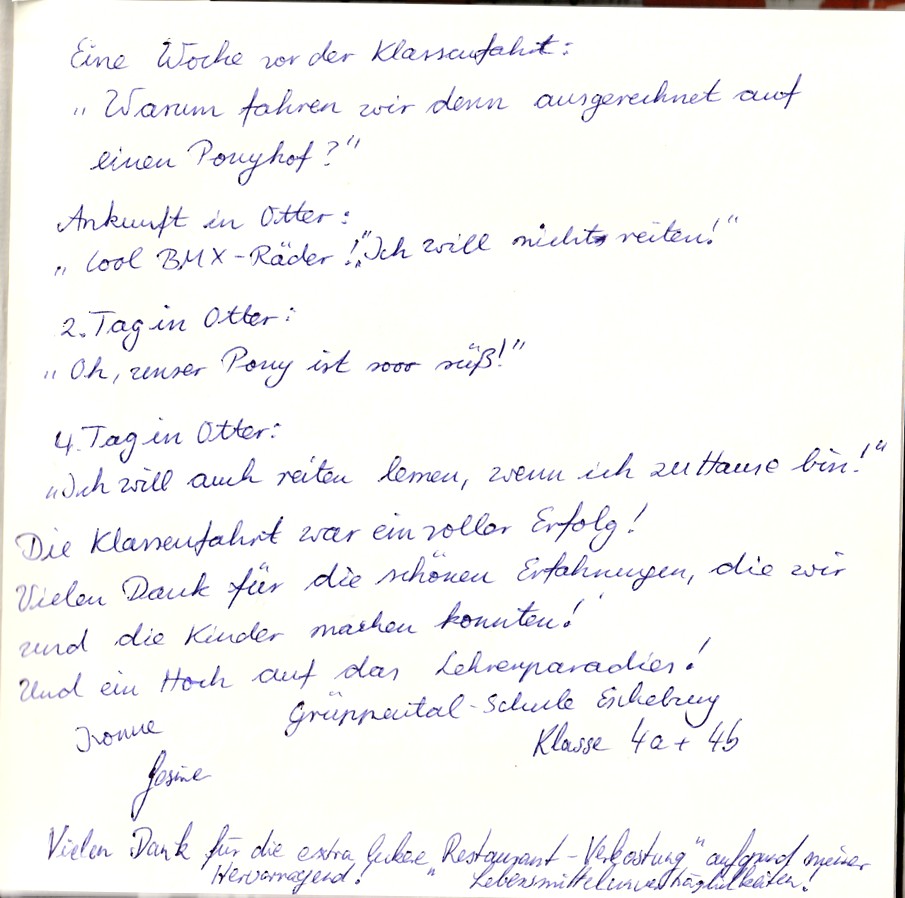 Eine Woche vor der Klassenfahrt:
„ Warum fahren wir denn ausgerechnet auf
einen Ponyhof?"
Ankunft in Otter:
„ Cool BMX-Räder!" „Ich will nichts reiten!"
2. Tag in Otter:
„ Oh, unser Pony ist sooo süß!"
4. Tag in Otter:
„Ich will auch reiten lernen, wenn ich zu Hause bin!"
Die Klassenfahrt war ein voller Erfolg!
Vielen Dank für die schönen Erfahrungen, die wir
und die Kinder machen konnten!
Und ein Hoch auf das Lehrerparadies!
Grüppental-Schule
Klasse 4a + 4b
Vielen Dank für die extra „Restaurant-Verköstung" aufgrund meiner
Hervorragend! Lebensmittelunverträglichkeiten!